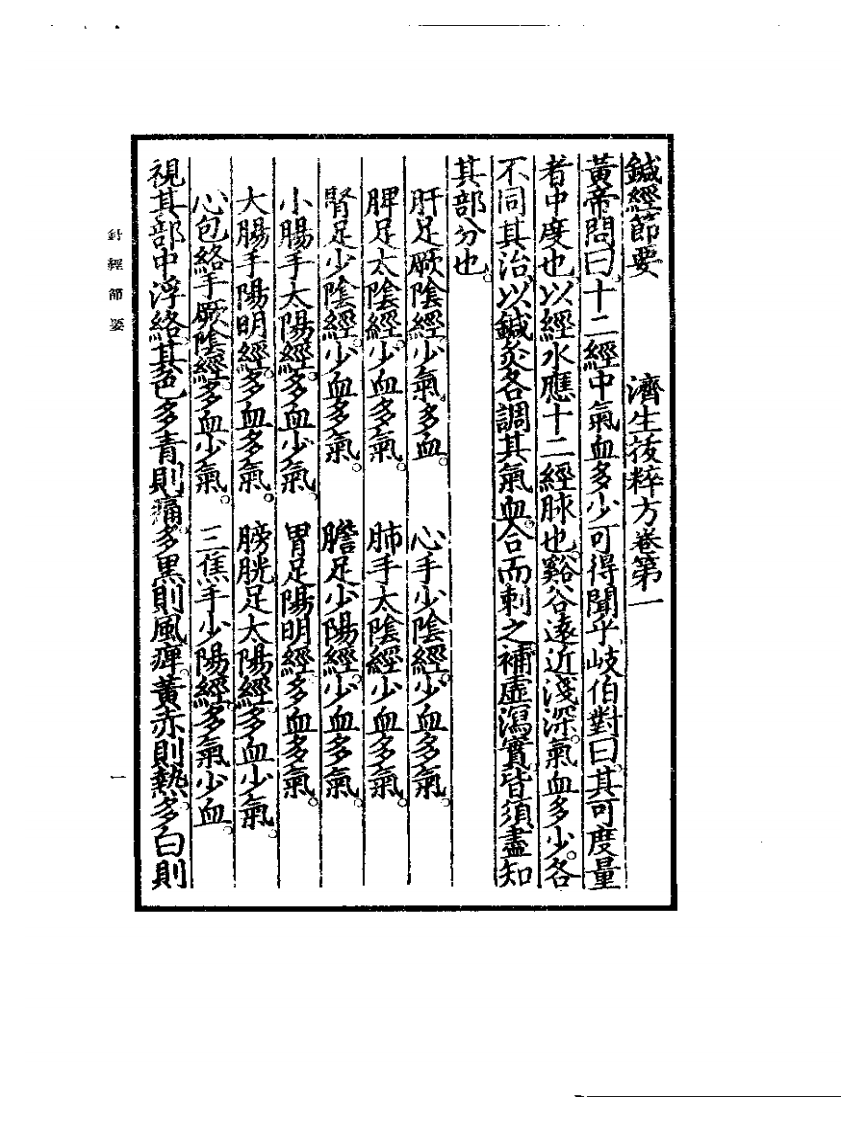 鍼經節要　　濟生拔粹方卷第一
黃帝問曰。十二經中氣血多少可得聞乎。岐伯對曰。其可度量
者中度也。以經水應十二經脉也。谿谷遠近淺深。氣血多少。各
不同其治。以鍼灸各調其氣血。合而刺之。補虛瀉實。皆須盡知
其部分也。
肝足厥陰經。少氣多血。　心手少陰經。少血多氣。
脾足太陰經。少血多氣。　肺手太陰經。少血多氣。
腎足少陰經。少血多氣。　膽足少陽經。少血多氣。
小腸手太陽經。多血少氣。　胃足陽明經。多血多氣。
大腸手陽明經。多血多氣。　膀胱足太陽經。多血少氣。
心包絡手厥陰經。多血少氣。　三焦手少陽經。多氣少血。
視其部中浮絡。其色多青則痛。多黑則風痺。黃赤則熱。多白則
針經節要
一